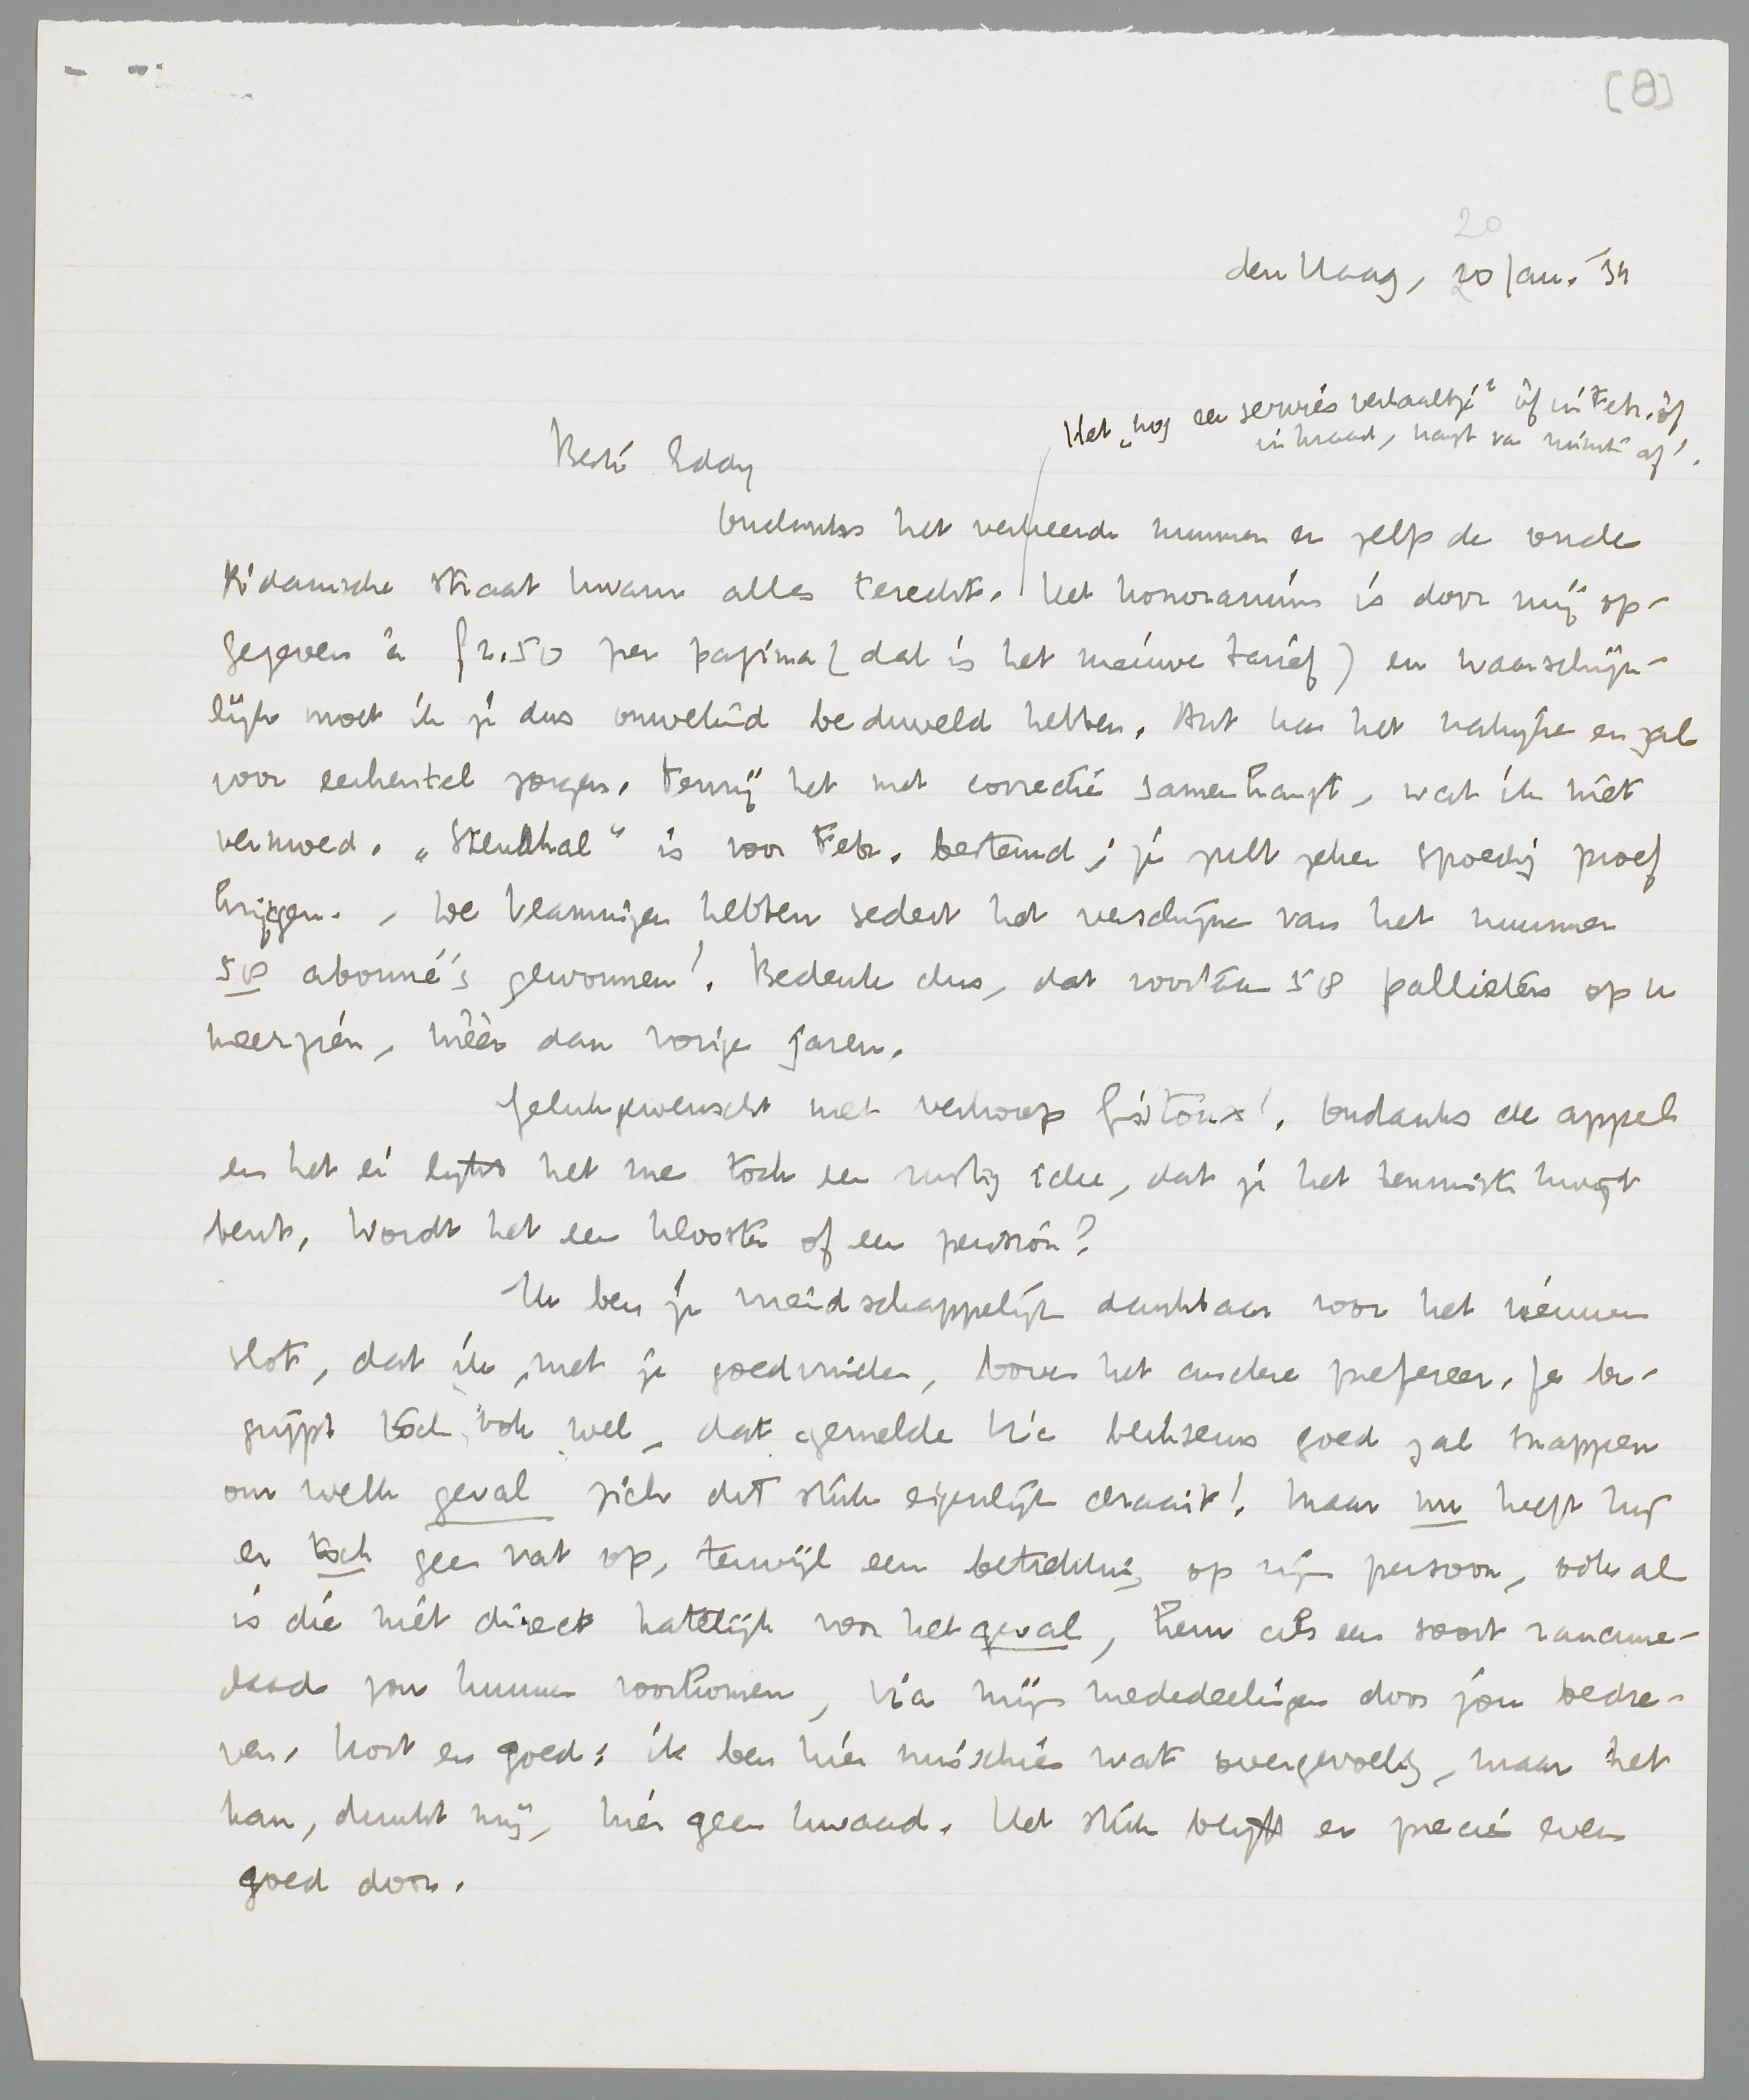 [8]
20
den Haag, 20 Jan. '34
Het „nog een servies verhaaltje” òf in Febr. òf
in Maart, hangt van ruimte af!
Beste Eddy
Ondanks het verkeerde nummer en zelfs de oude
R'damsche straat kwam alles terecht. Het honorarium is door mij op-
gegeven à f 2.50 per pagina (dat is het nieuwe tarief) en waarschijn-
lijk moet ik je dus onwetend beduveld hebben. Ant kan het nakijken en zal
voor eenheid zorgen. Tenzij het met correctie samenhangt, wat ik niet
vermoed. „Stendhal” is voor Febr. bestemd; je zult zeker spoedig proef
krijgen. , De Vlamingen hebben sedert het verschijnen van het nummer
58 abonné's gewonnen! Bedenk dus, dat voortaan 58 pallieters op u
neerzien, méér dan vorige jaren.
Gelukgewenscht met verkoop Gistoux! Ondanks de appel
en het ei lijkt het me toch een rustig idee, dat je het tenminste kwijt
bent. Wordt het een klooster of een pension?
Ik ben je vriendschappelijk dankbaar voor het nieuwe
slot, dat ik, met je goedvinden, boven het andere prefereer. Je be-
grijpt toch ook wel, dat gemelde Vic bliksems goed zal snappen
om welk geval zich dit stuk eigenlijk draait! Maar nu heeft hij
er toch geen vat op, terwijl een betrekking op zijn persoon, ook al
is die niet direct hatelijk voor het geval, hem als een soort rancune-
daad zou kunnen voorkomen, via mijn mededeelingen door jou bedre-
ven. Kort en goed: ik ben hier misschien wat overgevoelig, maar het
kan, dunkt mij, hier geen kwaad. Het stuk blijft er precies even
goed door.